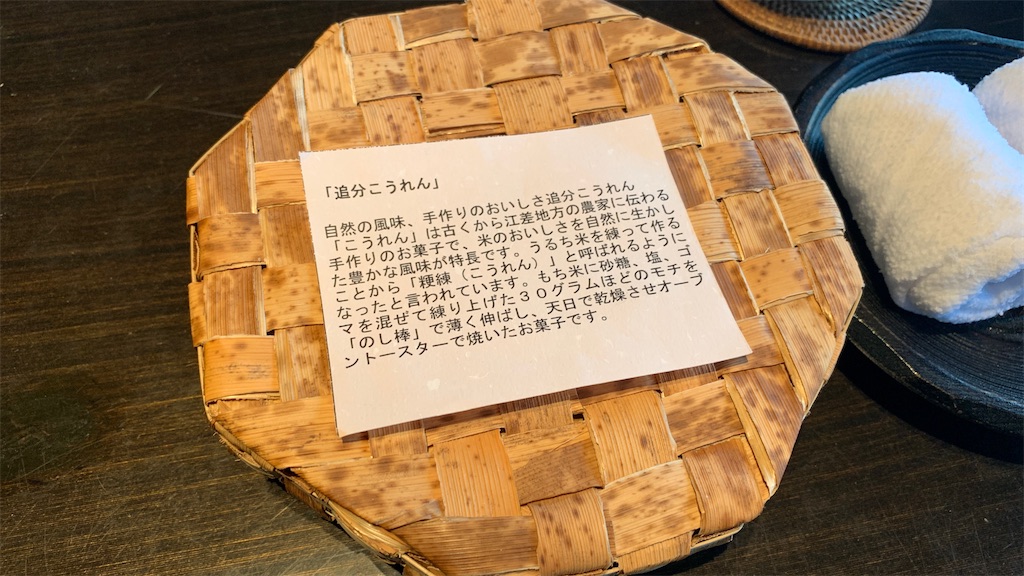 「追分こうれん」
自然の風味、手作りのおいしさ追分こうれん
「こうれん」は古くから江差地方の農家に伝わる
手作りのお菓子で、米のおいしさを自然に生かし
た豊かな風味が特長です。うるち米を練って作る
ことから「粳練（こうれん）」と呼ばれるように
なったと言われています。もち米に砂糖、塩、ゴ
マを混ぜて練り上げた３０グラムほどのモチを
「のし棒」で薄く伸ばし、天日で乾燥させオーブ
ントースターで焼いたお菓子です。